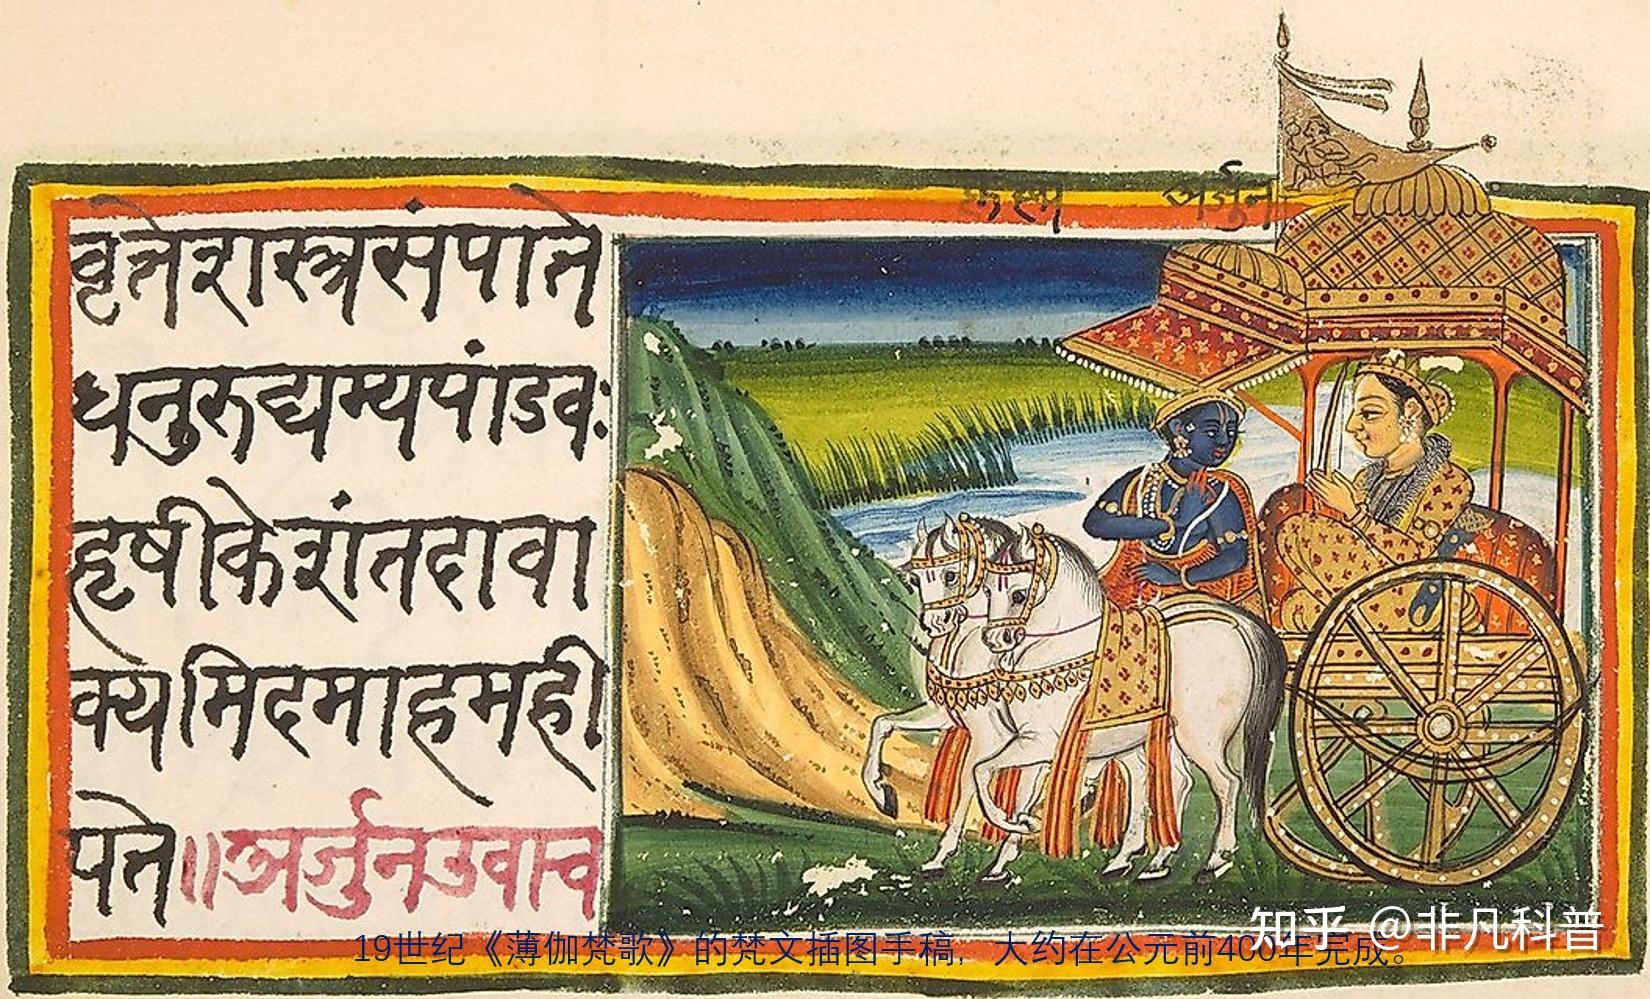 अर्जुन
वृत्तेशस्त्रसंपाते
धनुरुद्यम्यपांडवः
हृषीकेशंतदावा
क्यमिदमाहमही
पते॥अर्जुनउवाच
知乎 @非凡科普
19世纪《薄伽梵歌》的梵文插图手稿，大约在公元前400年完成。